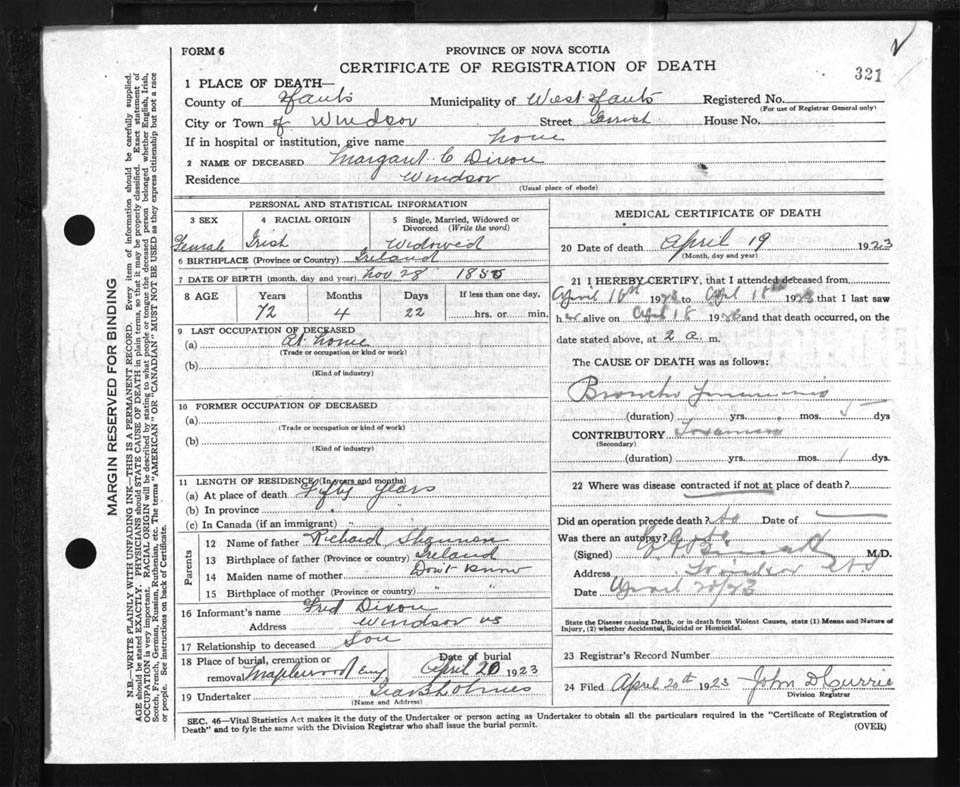 FORM 6
PROVINCE OF NOVA SCOTIA
CERTIFICATE OF REGISTRATION OF DEATH
321
1 PLACE OF DEATH—
County of Hants Municipality of West Hants Registered No.
(For use of Registrar General only)
City or Town of Windsor Street Gerrish House No.
If in hospital or institution, give name home
2 NAME OF DECEASED Margaret C Dixon
Residence Windsor
(Usual place of abode)
PERSONAL AND STATISTICAL INFORMATION
3 SEX 4 RACIAL ORIGIN 5 Single, Married, Widowed or
Divorced (Write the word)
Female Irish Widowed
6 BIRTHPLACE (Province or Country) Ireland
7 DATE OF BIRTH (month, day and year) Nov 28 1850
8 AGE Years Months Days If less than one day,
72 4 22 hrs. or min.
9 LAST OCCUPATION OF DECEASED
(a) At home
(Trade or occupation or kind or work)
(b)
(Kind of industry)
10 FORMER OCCUPATION OF DECEASED
(a)
(Trade or occupation or kind of work)
(b)
(Kind of industry)
11 LENGTH OF RESIDENCE (In years and months)
(a) At place of death Fifty Years
(b) In province "
(c) In Canada (if an immigrant) "
Parents
12 Name of father Richard Shannon
13 Birthplace of father (Province or country) Ireland
14 Maiden name of mother Don't Know
15 Birthplace of mother (Province or country) "
16 Informant's name Fred Dixon
Address Windsor NS
17 Relationship to deceased Son
18 Place of burial, cremation or Date of burial
removal Maplewood Cem April 20 1923
19 Undertaker
(Name and Address)
MEDICAL CERTIFICATE OF DEATH
20 Date of death April 19 1923
(Month, day and year)
21 I HEREBY CERTIFY, that I attended deceased from
April 16th 1923 to April 18th 1923 that I last saw
her alive on April 18 1923 and that death occurred, on the
date stated above, at 2 a. m.
The CAUSE OF DEATH was as follows:
Broncho Pneumonia
(duration) yrs. mos. 5 dys
CONTRIBUTORY Toxaemia
(Secondary)
(duration) yrs. mos. 1 dys.
22 Where was disease contracted if not at place of death?
Did an operation precede death? No Date of —
Was there an autopsy?
(Signed) M.D.
Address Windsor N.S
Date April 20/23
State the Disease causing Death, or in death from Violent Causes, state (1) Means and Nature of
Injury, (2) whether Accidental, Suicidal or Homicidal.
23 Registrar's Record Number
24 Filed April 20th 1923 John D Currie
Division Registrar
SEC. 46—Vital Statistics Act makes it the duty of the Undertaker or person acting as Undertaker to obtain all the particulars required in the "Certificate of Registration of
Death" and to fyle the same with the Division Registrar who shall issue the burial permit.
(OVER)
MARGIN RESERVED FOR BINDING
N.B.—WRITE PLAINLY WITH UNFADING INK—THIS IS A PERMANENT RECORD. Every item of information should be carefully supplied.
AGE should be stated EXACTLY. PHYSICIANS should STATE CAUSE OF DEATH in plain terms, so that it may be properly classified. Exact statement of
OCCUPATION is very important. RACIAL ORIGIN will be described by stating to what people or tongue the deceased person belonged whether English, Irish,
Scotch, French, German, Russian, Ruthenian, etc. The terms "AMERICAN" OR "CANADIAN" MUST NOT BE USED as they express citizenship but not a race
or people. See instructions on back of Certificate.